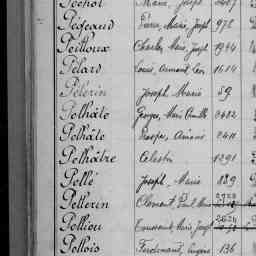 Péchot Marie, Joseph 2407
Pégeaud Pierre, Marie, Joseph 972
Peilloux Charles, Marie, Joseph 1944
Pélard Louis, Armand, Léon 1614
Pélerin Joseph, Marie 59
Pelhâte Georges, Marie, Camille 2482
Pelhâte Prosper, Aimant 2411
Pelhâtre Célestin 1291
Pellé Joseph, Marie 889
Pellerin Clément, Paul, Marie
Pelliou Toussaint, Marie, Joseph 2626
Pellois Ferdinand, Eugène 136